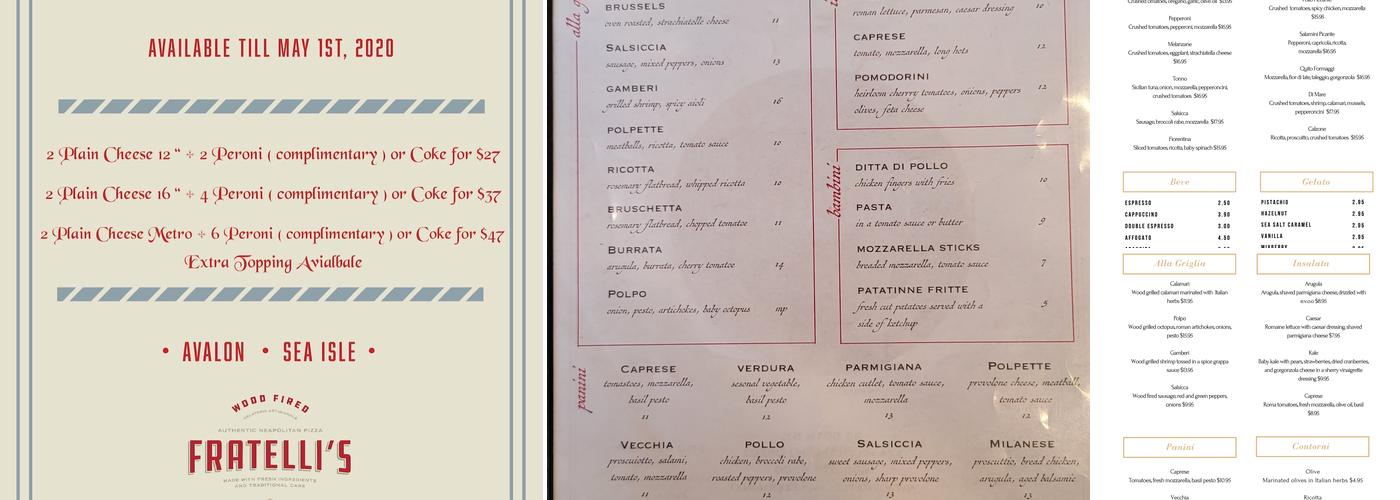 AVAILABLE TILL MAY 1ST, 2020
2 Plain Cheese 12 “ + 2 Peroni ( complimentary ) or Coke for $27
2 Plain Cheese 16 “ + 4 Peroni ( complimentary ) or Coke for $37
2 Plain Cheese Metro + 6 Peroni ( complimentary ) or Coke for $47
Extra Topping Avialbale
• AVALON • SEA ISLE •
WOOD FIRED
AUTHENTIC NEAPOLITAN PIZZA
FRATELLI'S
MADE WITH FRESH INGREDIENTS
AND TRADITIONAL CARE
alla g
BRUSSELS
oven roasted, strachiatelle cheese 11
SALSICCIA
sausage, mixed peppers, onions 13
GAMBERI
grilled shrimp, spicy aioli 16
POLPETTE
meatballs, ricotta, tomato sauce 10
RICOTTA
rosemary flatbread, whipped ricotta 10
BRUSCHETTA
rosemary flatbread, chopped tomatoe 11
BURRATA
arugula, burrata, cherry tomatoe 14
POLPO
onion, pesto, artichokes, baby octopus mp
roman lettuce, parmesan, caesar dressing 10
CAPRESE
tomato, mozzarella, long hots 12
POMODORINI
heirloom cherrry tomatoes, onions, peppers 12
olives, feta cheese
bambini
DITTA DI POLLO
chicken fingers with fries 10
PASTA
in a tomato sauce or butter 9
MOZZARELLA STICKS
breaded mozzarella, tomato sauce 7
PATATINNE FRITTE
fresh cut patatoes served with a 5
side of ketchup
panini
CAPRESE VERDURA PARMIGIANA POLPETTE
tomastoes, mozzarella, sesonal vegetable, chicken cutlet, tomato sauce, provolone cheese, meatball,
basil pesto basil pesto mozzarella tomato sauce
11 12 13 12
VECCHIA POLLO SALSICCIA MILANESE
prosciuotto, salami, chicken, broccoli rabe, sweet sausage, mixed peppers, proscuittio, bread chicken,
tomato, mozzarella roasted peppers, provolone onions, sharp provolone arugula, aged balsamic
11 12 13 13
Crushed tomatoes, oregano, garlic, olive oil
Pepperoni
Crushed tomatoes, pepperoni, mozzarella $16.95
Melanzane
Crushed tomatoes, eggplant, strachiatella cheese
$16.95
Tonno
Sicilian tuna, onion, mozzarella, pepperoncini,
crushed tomatoes $16.95
Salsicca
Sausage, broccoli rabe, mozzarella $17.95
Fiorentina
Sliced tomatoes, ricotta, baby spinach $15.95
Crushed tomatoes, spicy chicken, mozzarella
$15.95
Salamini Picante
Pepperoni, capricola, ricotta,
mozzarella $16.95
Quito Formaggi
Mozzarella, fior di late, taleggio, gorgonzola $16.95
Di Mare
Crushed tomatoes, shrimp, calamari, mussels,
pepperoncini $17.95
Calzone
Ricotta, proscuitto, crushed tomatoes $15.95
Beve
ESPRESSO 2.50
CAPPUCCINO 3.90
DOUBLE ESPRESSO 3.00
AFFOGATO 4.50
Gelato
PISTACHIO 2.95
HAZELNUT 2.95
SEA SALT CARAMEL 2.95
VANILLA 2.95
Alla Griglia
Calamari
Wood grilled calamari marinated with Italian
herbs $11.95
Polpo
Wood grilled octopus, roman artichokes, onions,
pesto $15.95
Gamberi
Wood grilled shrimp tossed in a spice grappa
sauce $13.95
Salsicca
Wood fired sausage, red and green peppers,
onions $9.95
Insalata
Arugula
Arugula, shaved parmigiana cheese, drizzled with
e.v.o.o $8.95
Caesar
Romaine lettuce with caesar dressing, shaved
parmigiana cheese $7.95
Kale
Baby kale with pears, strawberries, dried cranberries,
and gorgonzola cheese in a sherry vinaigrette
dressing $9.95
Caprese
Roma tomatoes, fresh mozzarella, olive oil, basil
$8.95
Panini
Caprese
Tomatoes, fresh mozzarella, basil pesto $10.95
Vecchia
Contorni
Olive
Marinated olives in Italian herbs $4.95
Ricotta